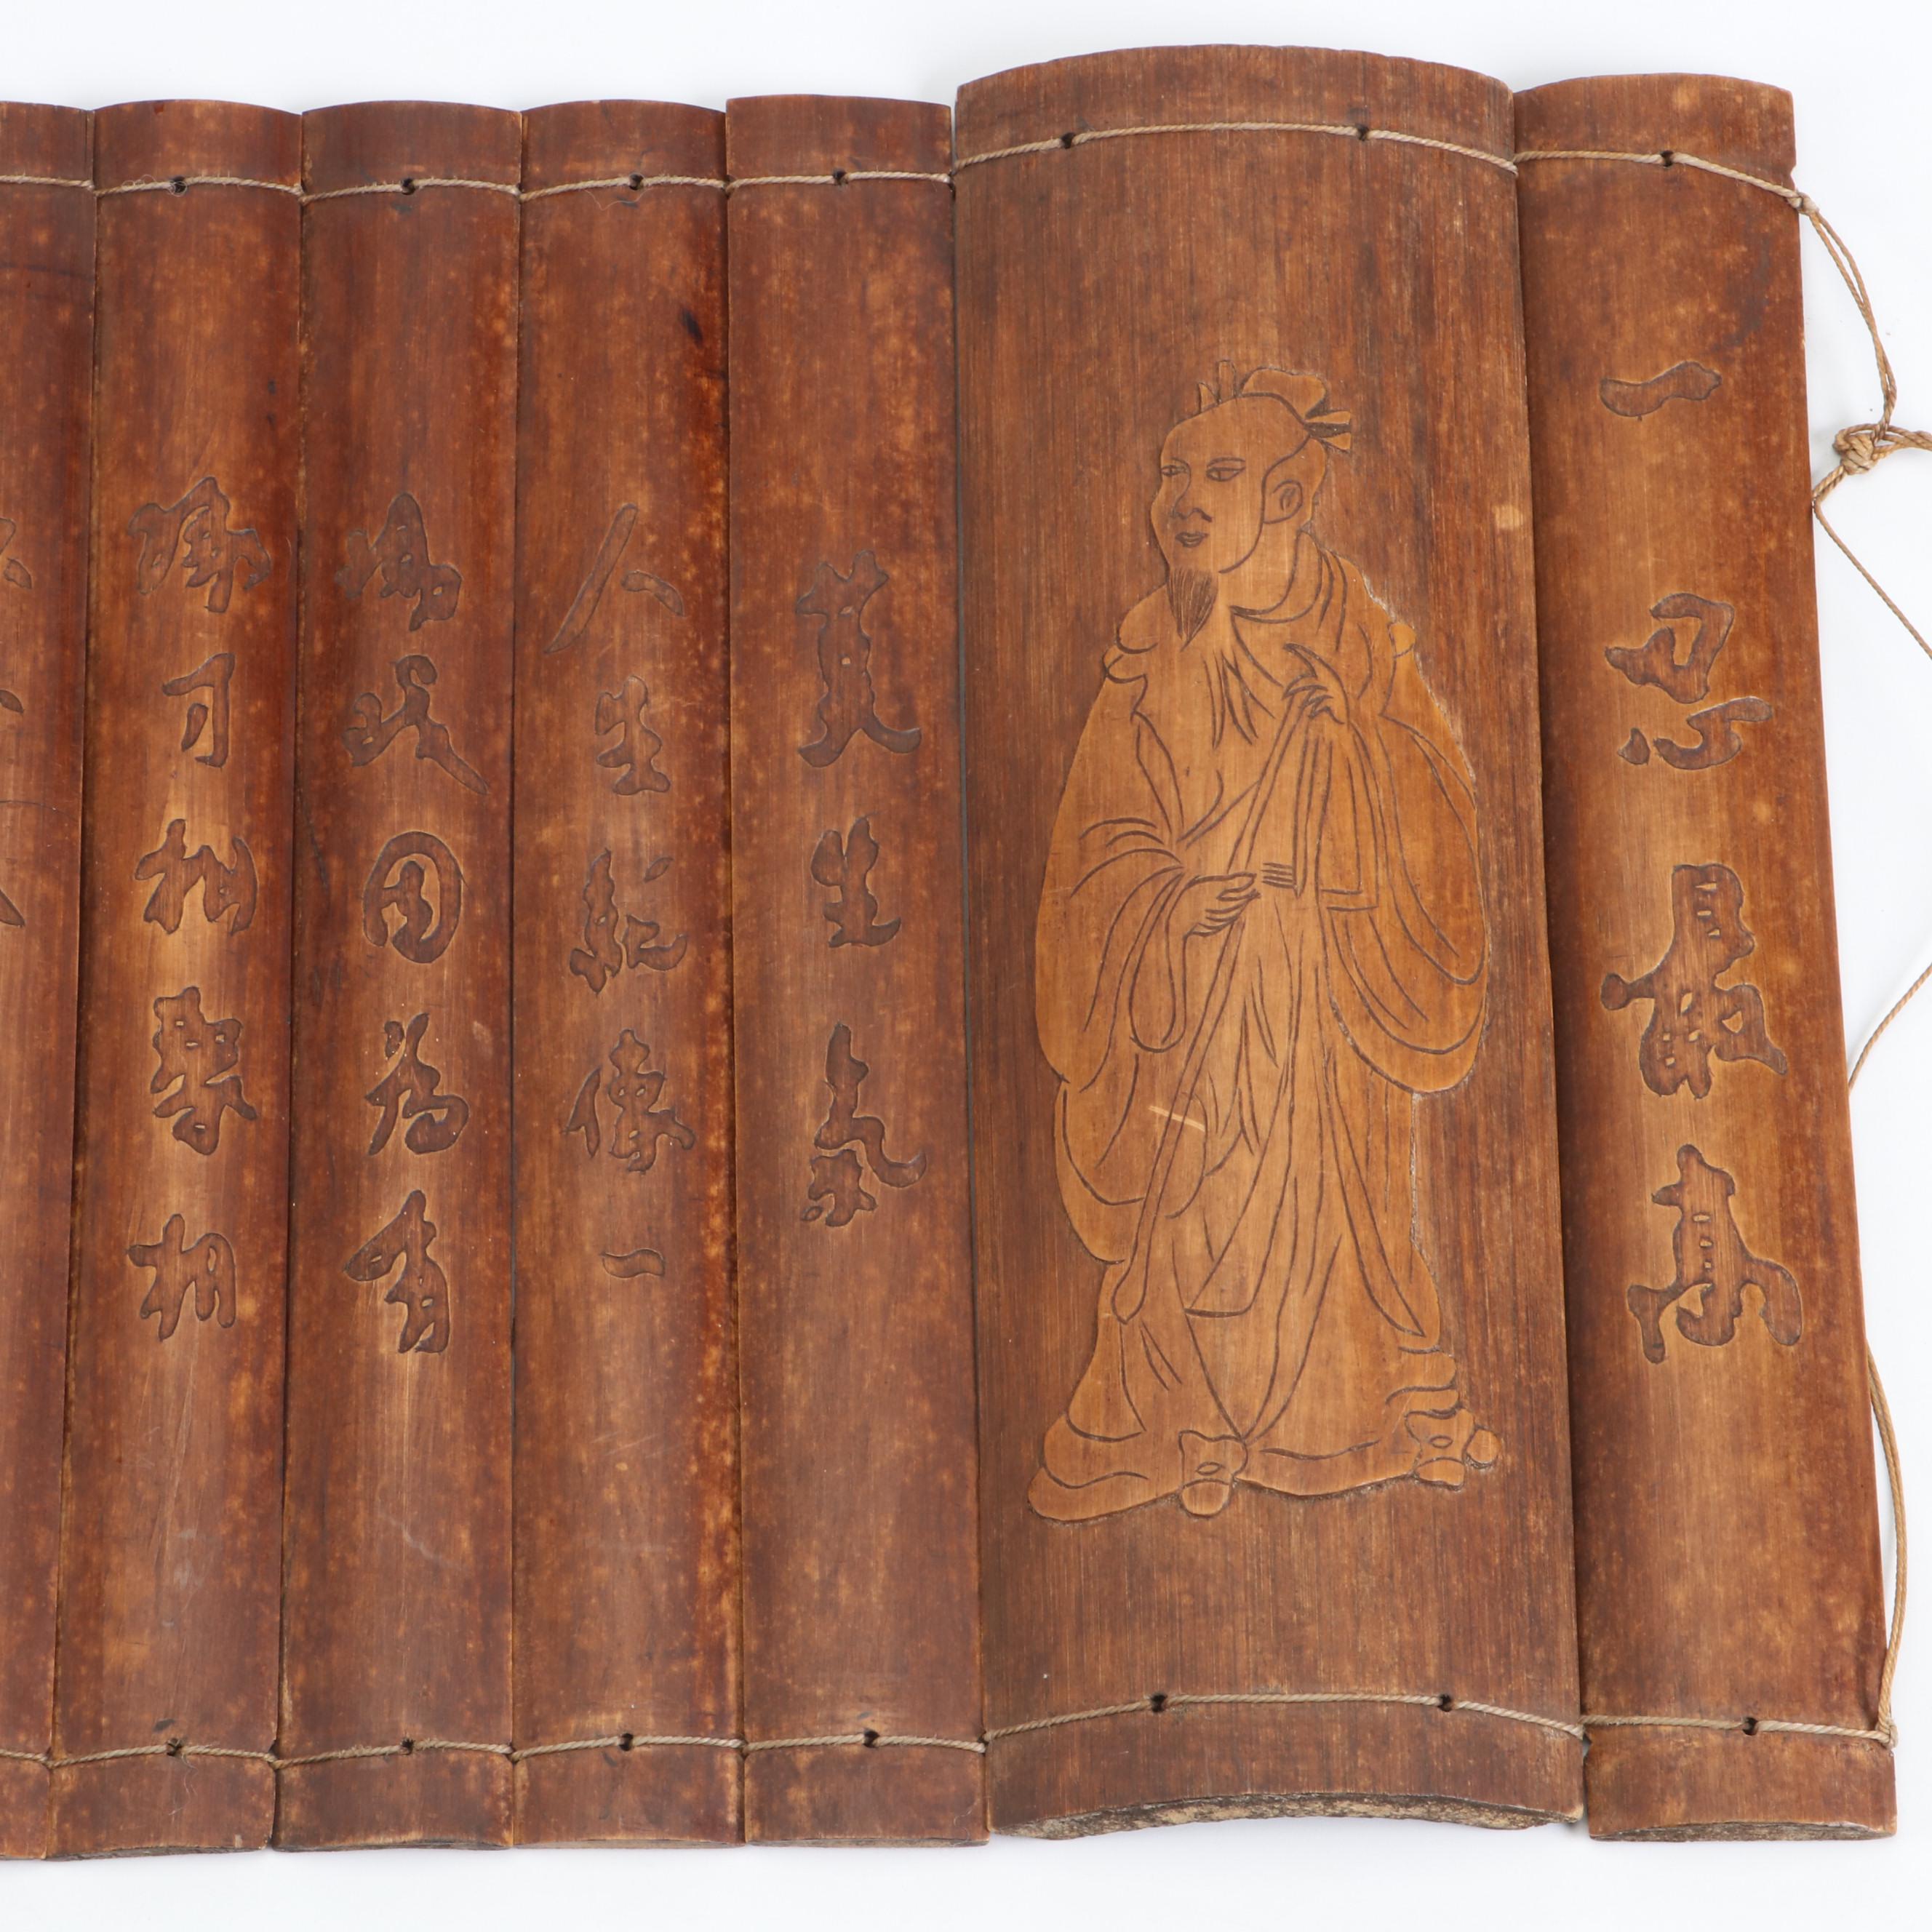 一忍最高
莫生氣
人生就像一
場戏因为有
缘才相聚相